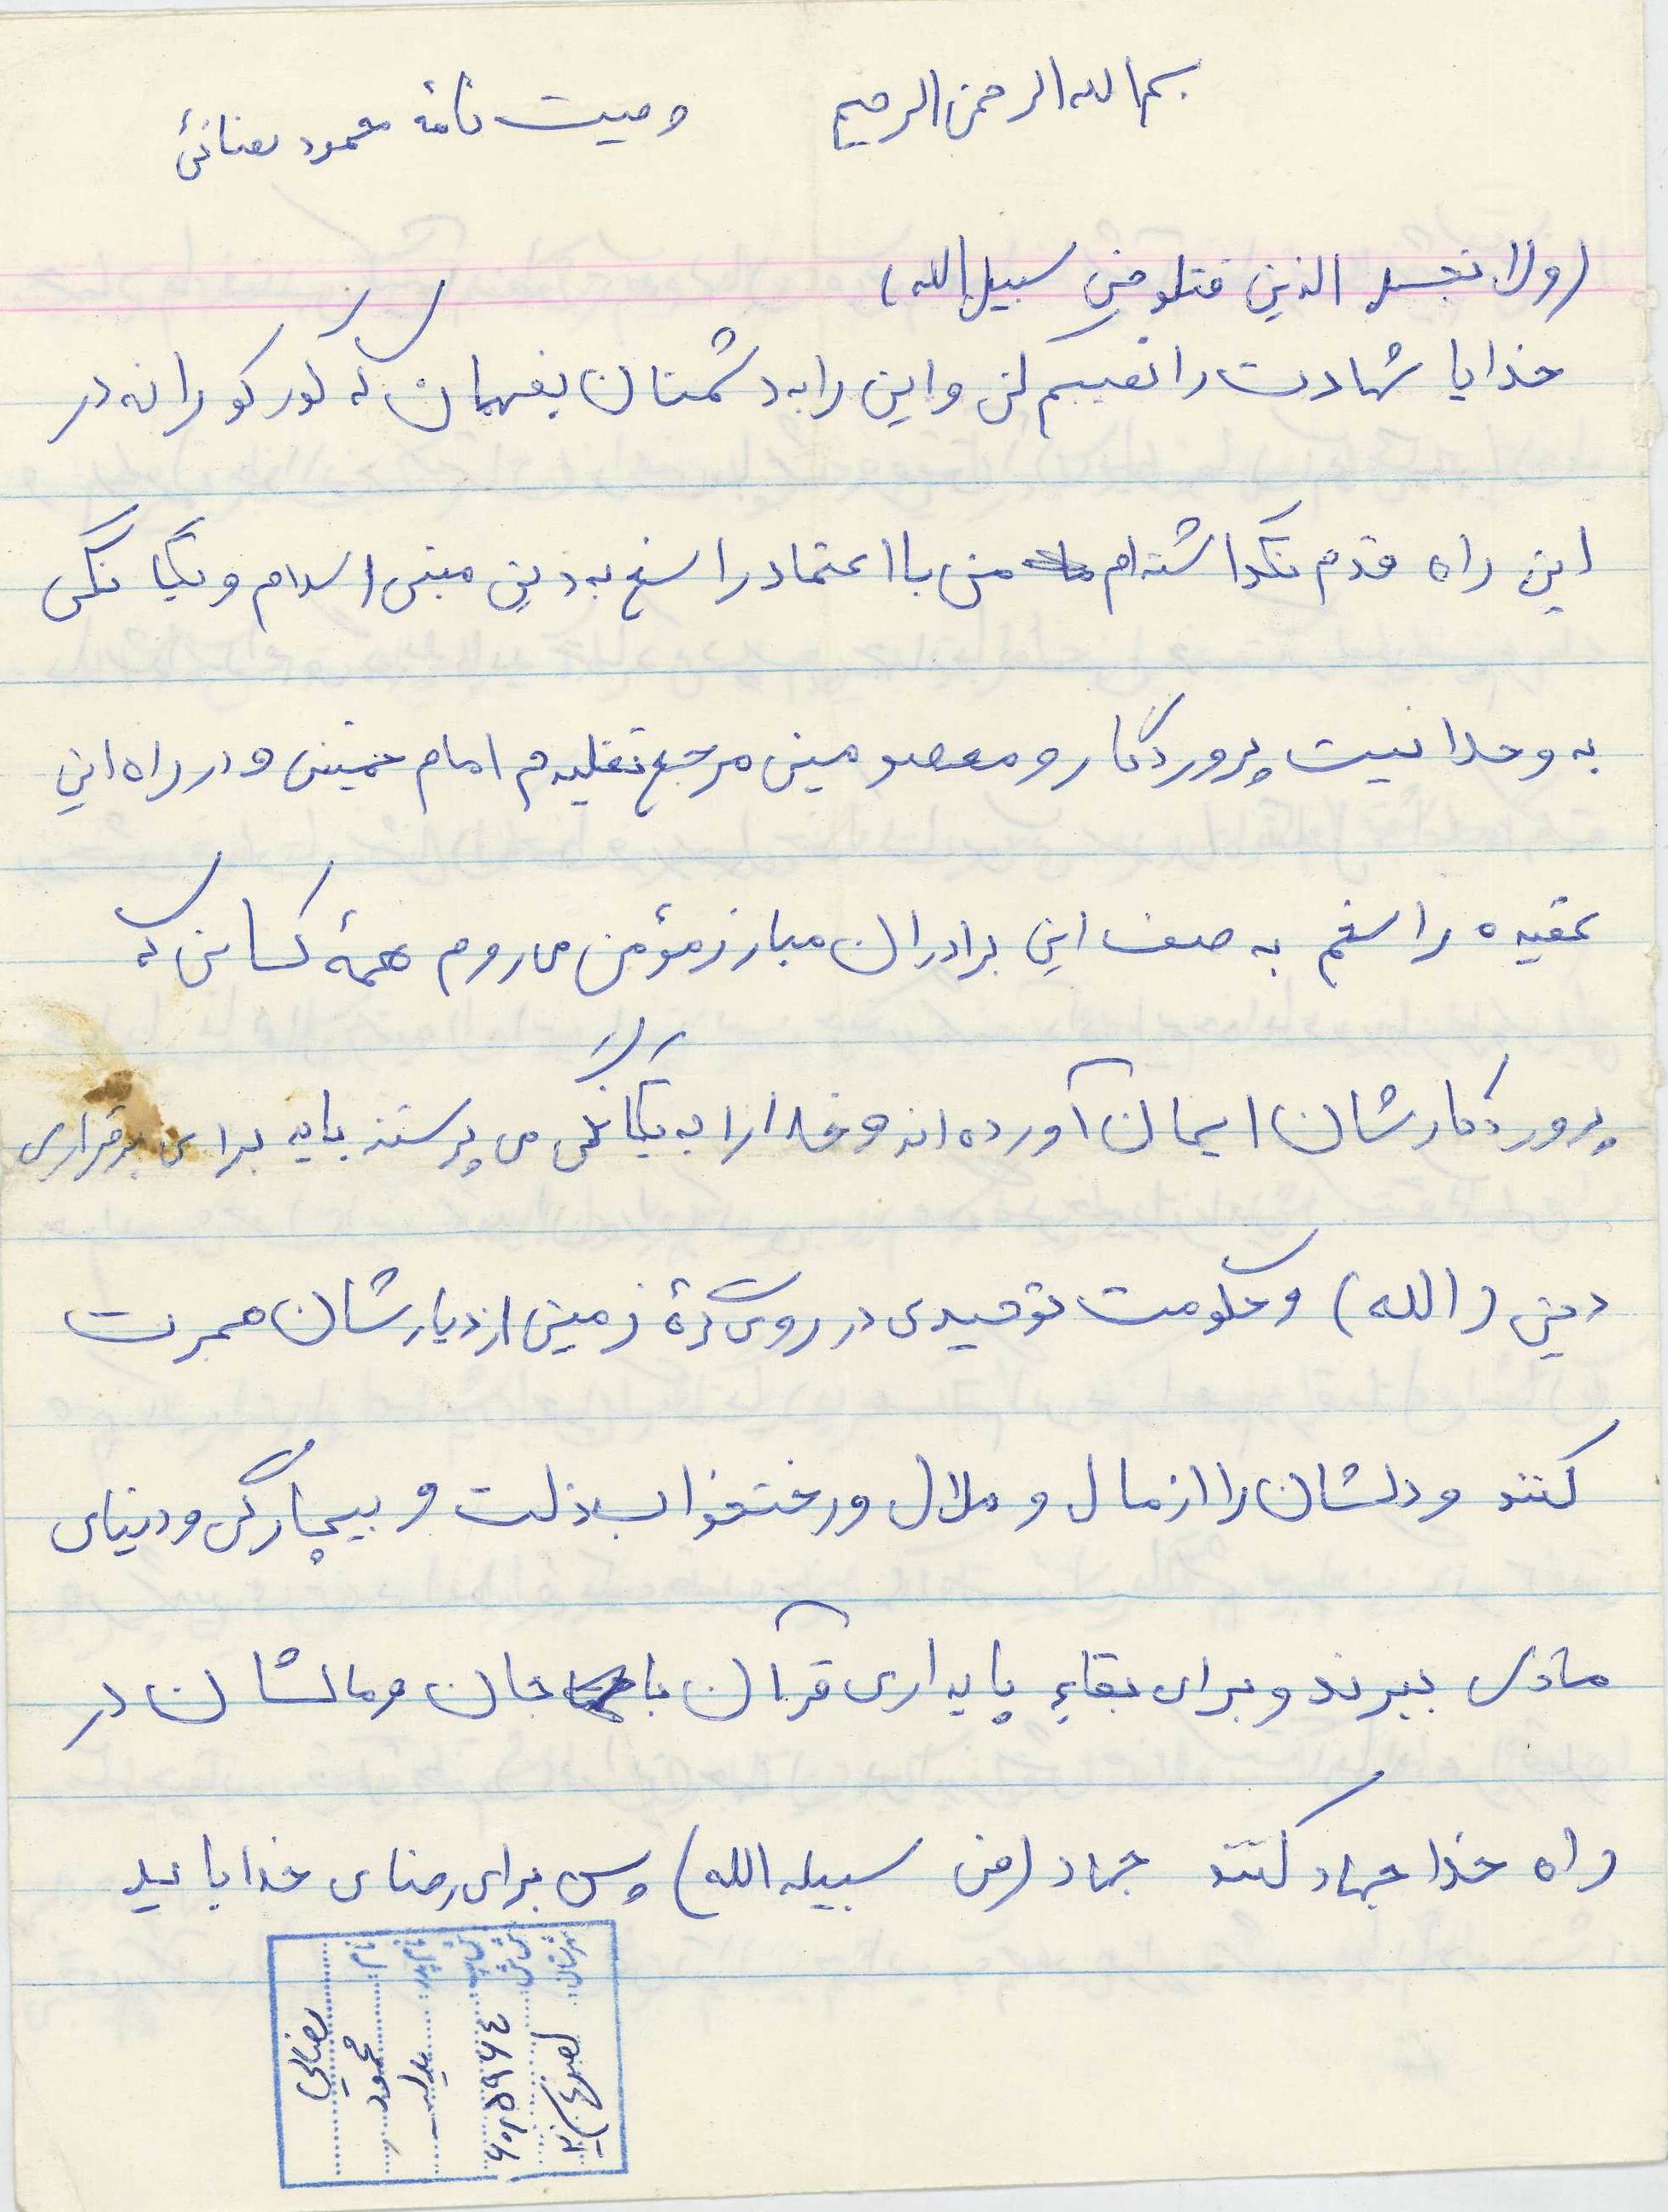 بسم الله الرحمن الرحیم
وصیت نامهٔ محمود رضائی
(ولا تحسبن الذین قتلو فی سبیل الله)
خدایا شهادت را نصیبم کن و این را به دشمنان بفهمان که کورکورانه در
این راه قدم نگذاشته‌ام من با اعتماد راسخ به دین مبین اسلام و یگانگی
به وحدانیت پروردگار و معصومین مرجع تقلیدم امام خمینی و در راه این
عقیده راسخم به صف این برادران مبارز مؤمن می روم همهٔ کسانی که
پروردگارشان ایمان آورده اند و خدا را به یگانگی می پرستند باید برای برقراری
دین (الله) و حکومت توحیدی در روی کرهٔ زمین از دیارشان هجرت
کنند و دلشان را از مال و ملال و رختخواب ذلت و بیچارگی و دنیای
مادی ببرند و برای بقاء پایداری قرآن با جان و مالشان در
راه خدا جهاد کنند جهاد (فی سبیله الله) پس برای رضای خدا باید
رضائی
نام محمود
نام پدر یداله